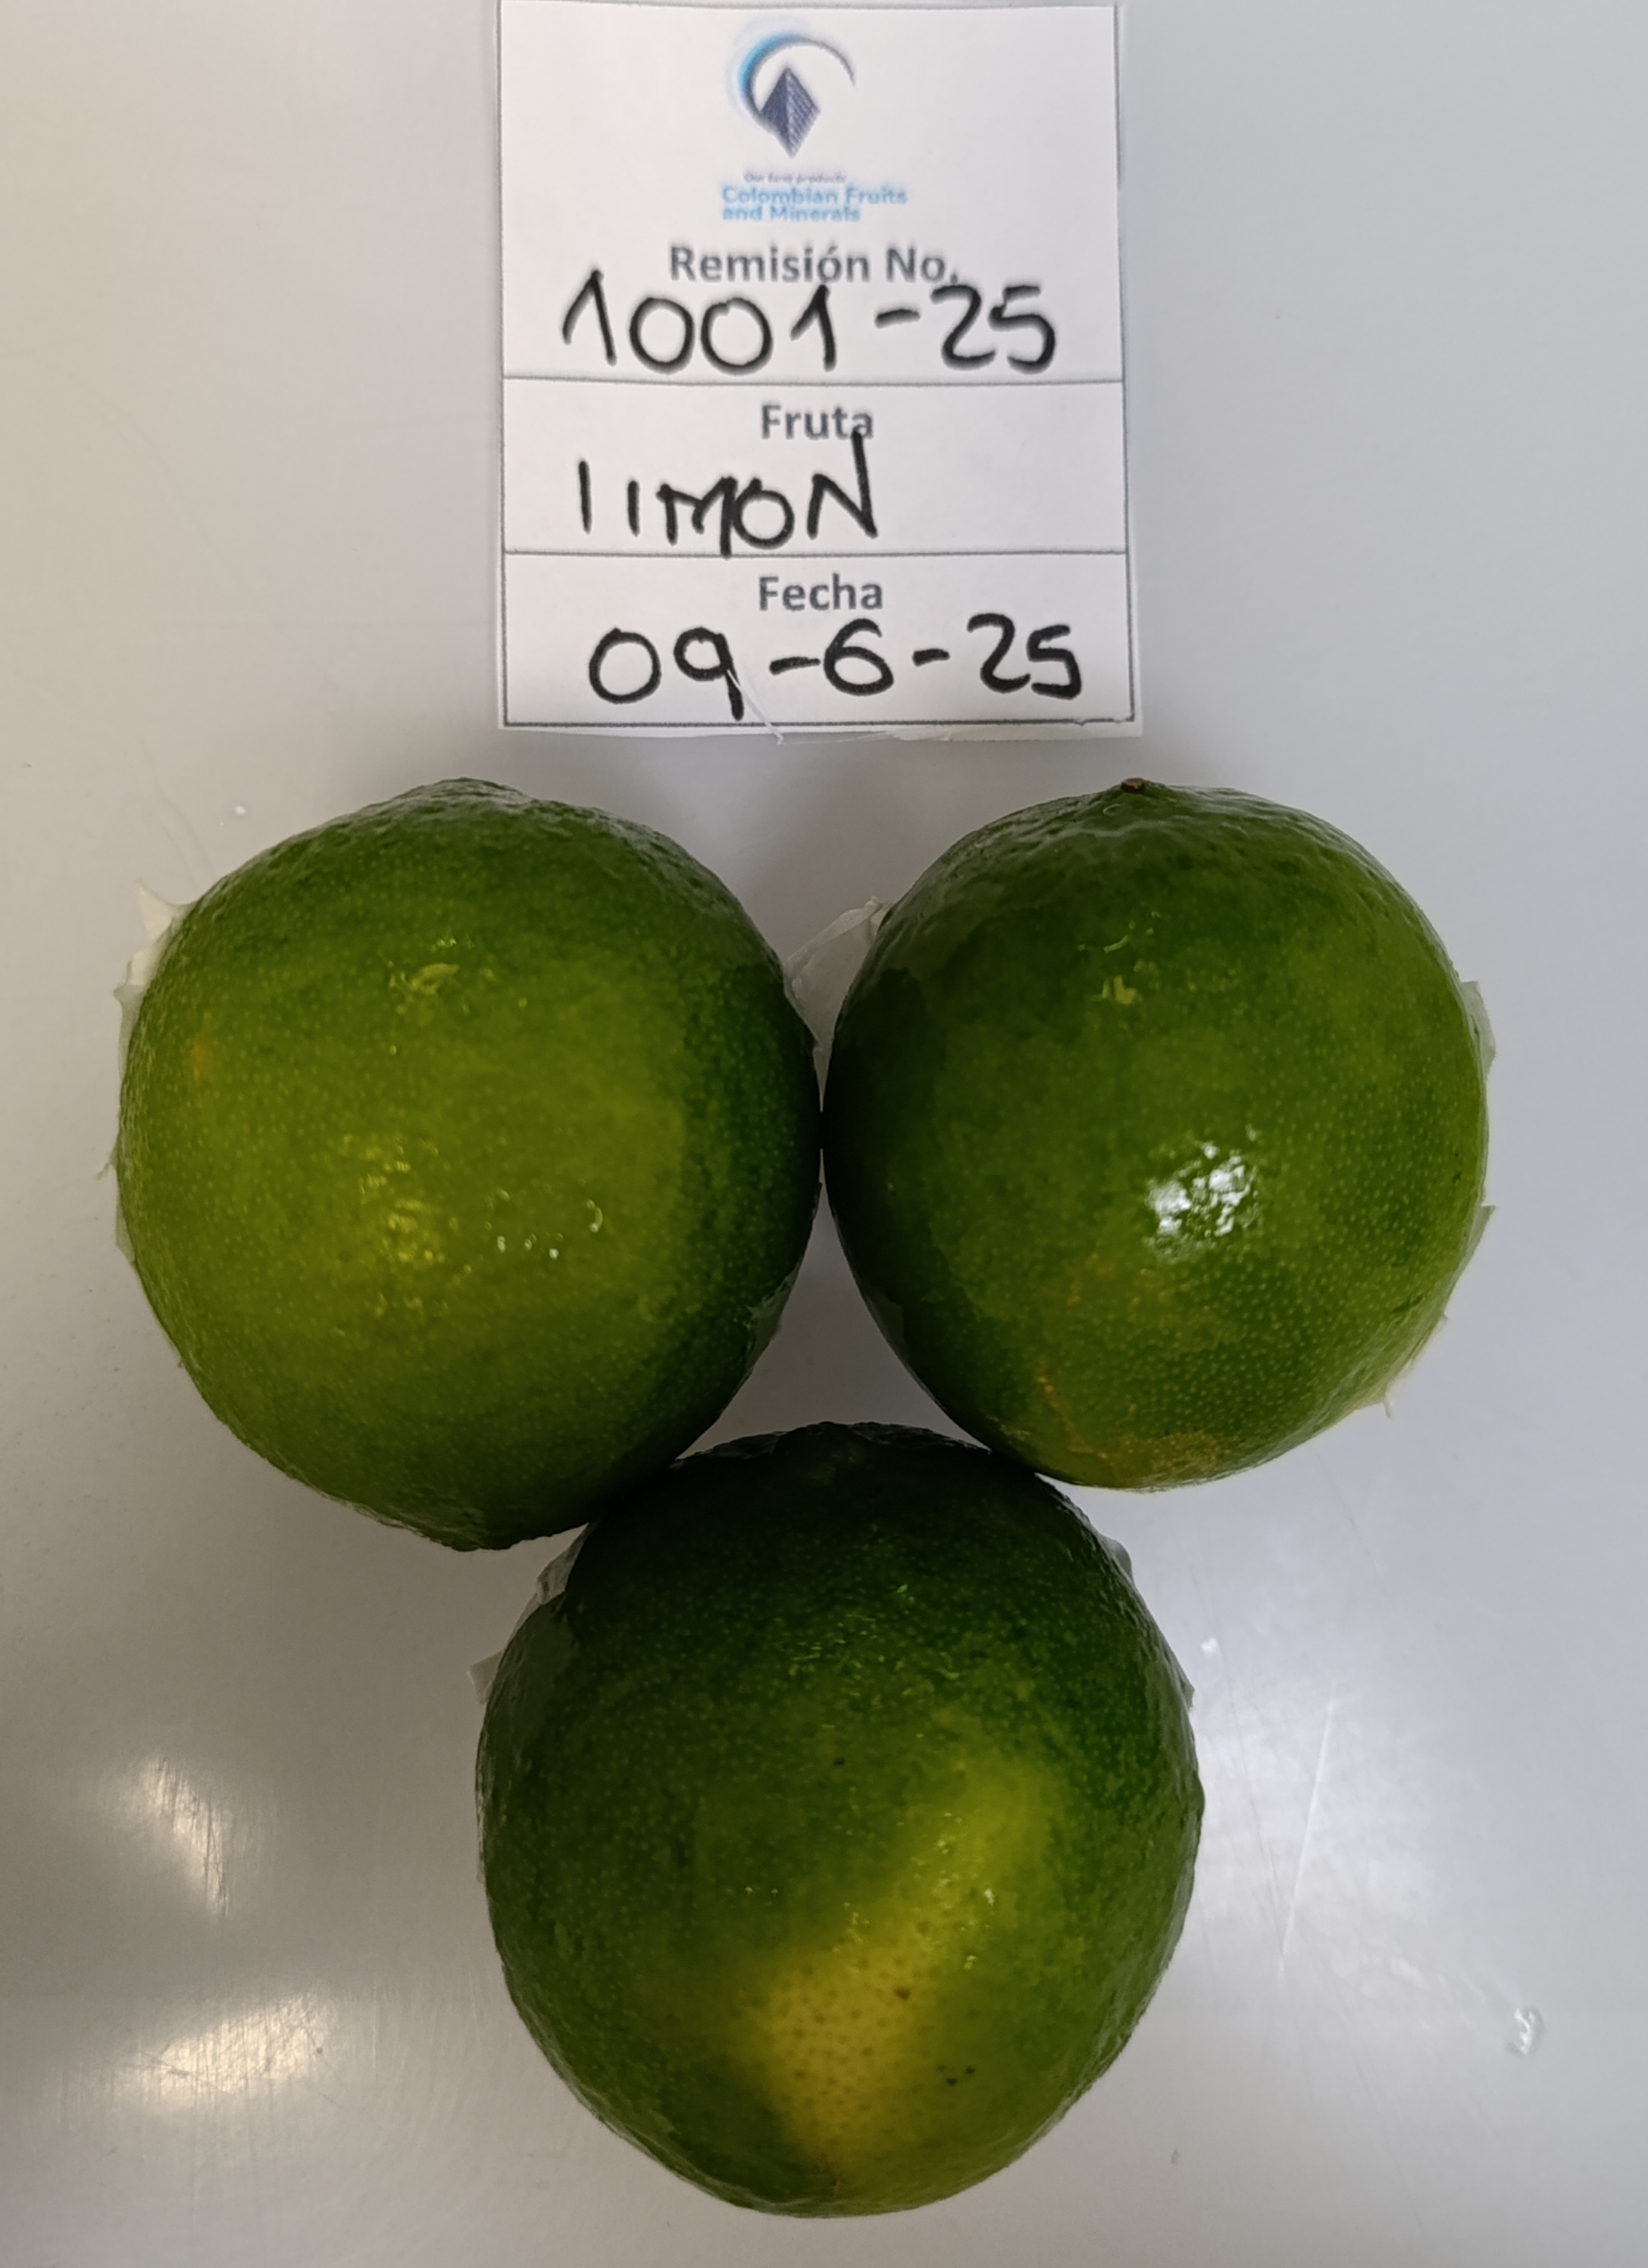 Our best products
Colombian Fruits
and Minerals
Remisión No.
1001-25
Fruta
lIMON
Fecha
09-6-25